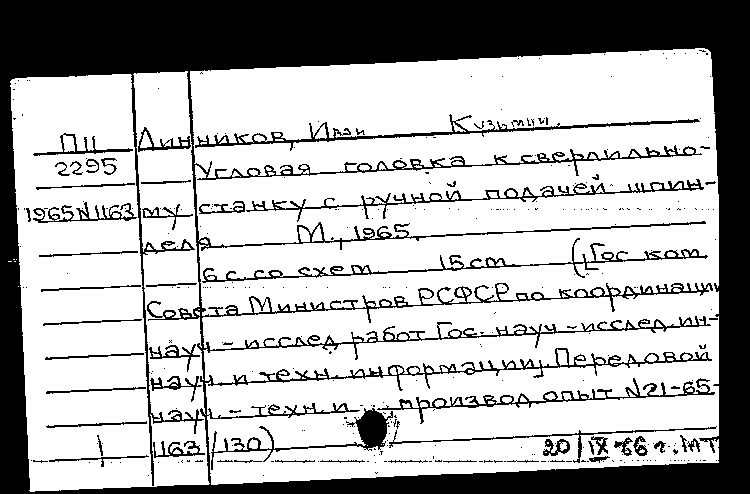 П11 Линников, Иван Кузьмич.
2295 Угловая головка к сверлильно-
1965 N1163 му станку с ручной подачей шпин-
деля. М., 1965.
6 с. со схем. 15 см. ([Гос. ком.
Совета Министров РСФСР по координации
науч.-исслед. работ. Гос. науч.-исслед. ин-т
науч. и техн. информации]. Передовой
науч.-техн. и производ. опыт N21-65-
1163/130).
20/IX-66 г. МТ